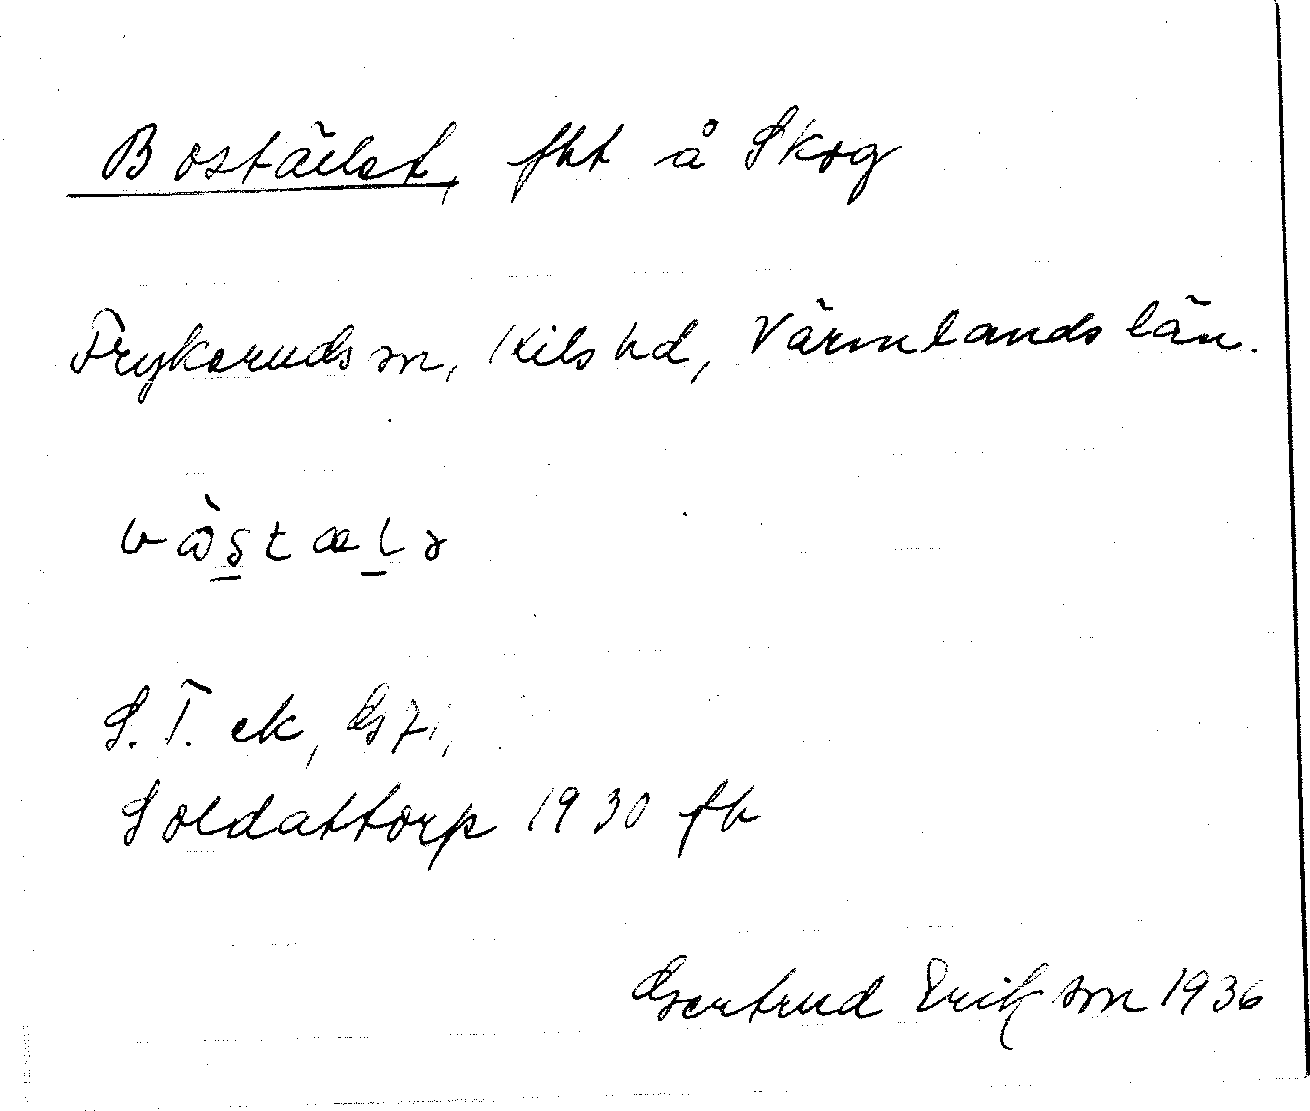 Bostället, fht å Skog
Frykeruds sn, Kils hd, Värmlands län.
S. T. ek,
Soldattorp 1930 fb
Gertrud Erikson 1936